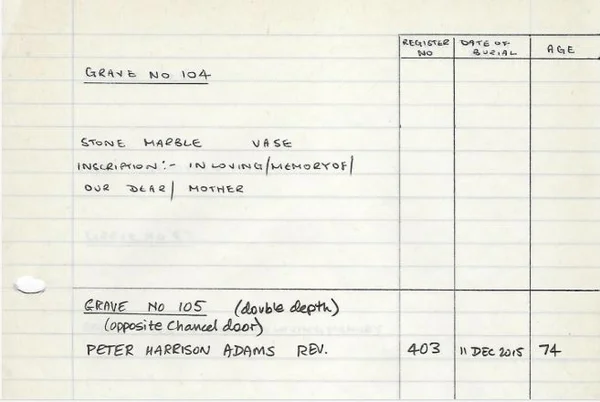 REGISTER NO DATE OF BURIAL AGE
GRAVE NO 104
STONE MARBLE VASE
INSCRIPTION:- IN LOVING/MEMORY OF/
OUR DEAR/ MOTHER
GRAVE NO 105 (double depth)
(opposite Chancel door)
PETER HARRISON ADAMS REV. 403 11 DEC 2015 74